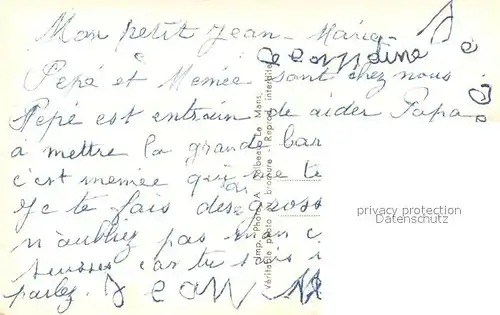 Mon petit Jean-Marie
Georgdine
Pépé et Memée sont chez nous
Pépé est entrain de aider Papa
à mettre la grande bar
c'est memée qui te
Je te fais des gross
n'aubliez pas mon c
car tu sais
parlez. Jean
Imp. Photo. A. Dolbeau, Le Mans,
Véritable photo au bromure - Reprod. interdite
privacy protection
Datenschutz